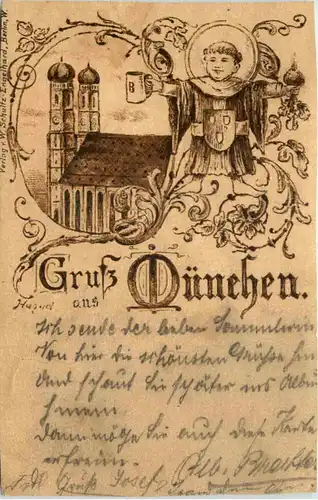 Verlag v. W. Schultz-Engelhard, Berlin, W.
B
Gruß
aus
München.
Ich sende der lieben Sammlerin
Von hier die schönsten Grüße hin
Und schaut Sie später ins Album
hinein.
Dann möge Sie auch diese Karte
erfreun.
Gruß Josef